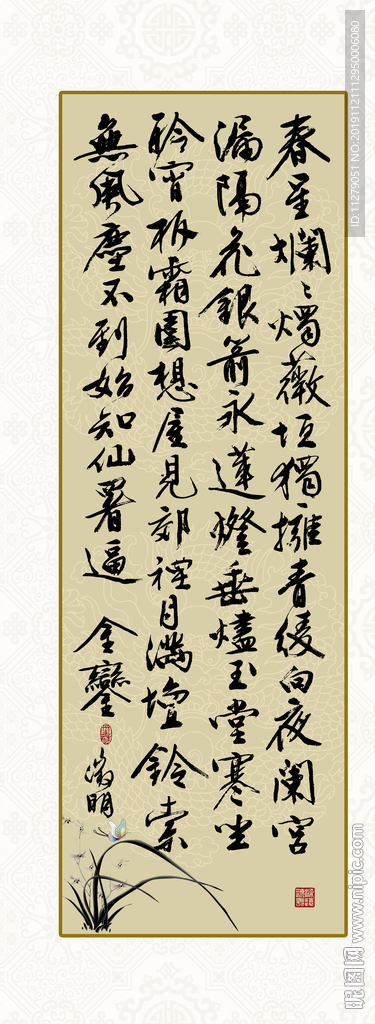 春星爛〻燭薇垣獨擁青綾向夜闌宮
漏隔花銀箭永蓮燈垂燼玉堂寒坐
聆宵柝霜圍想屋見郊禋月滿壇鈴索
無風塵不到始知仙署逼金鑾
徵明
ID:11279051 NO:20191121112950006080
昵图网 www.nipic.com